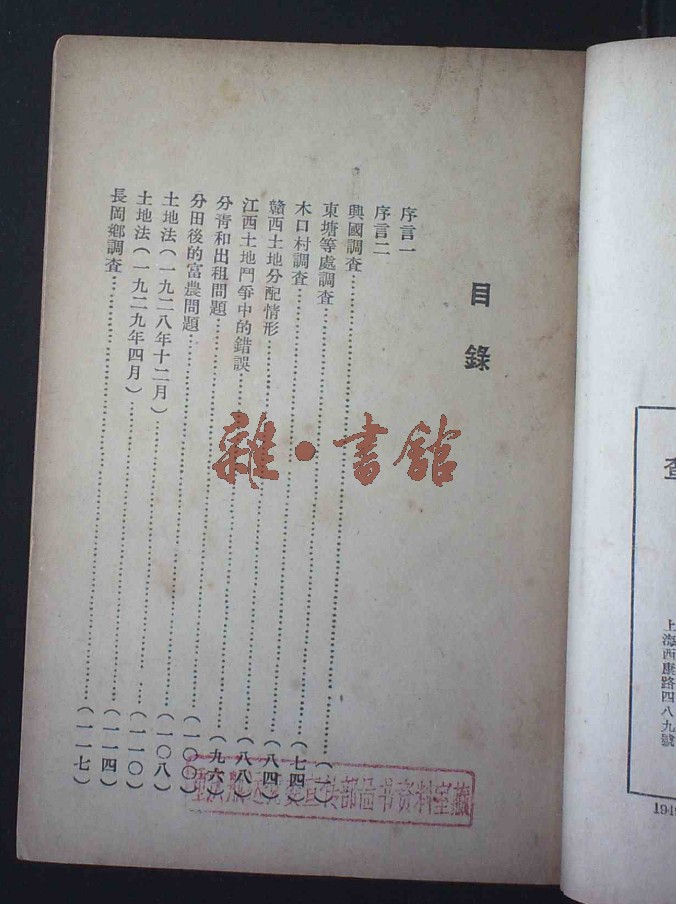 目錄
序言一
序言二
興國調查……(一)
東塘等處調查……(七四)
木口村調查……(八四)
贛西土地分配情形……(八八)
江西土地鬥爭中的錯誤……(九六)
分青和出租問題……(一〇〇)
分田後的富農問題……(一〇八)
土地法(一九二八年十二月)……(一一〇)
土地法(一九二九年四月)……(一一四)
長岡鄉調查……(一一七)
雜•書館
宣传部图书资料室藏
查
上海西 路四八九號